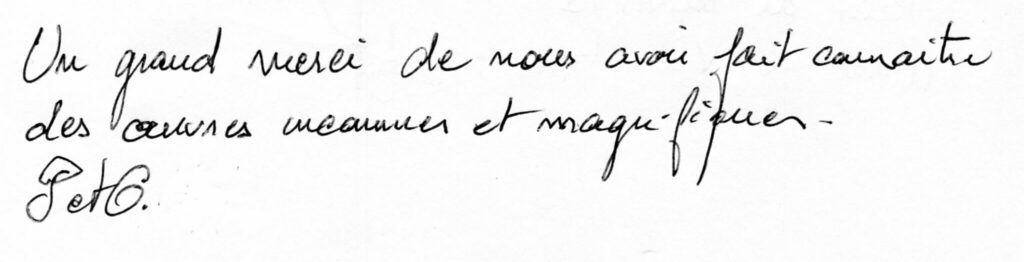 Un grand merci de nous avoir fait connaitre
des œuvres inconnues et magnifiques.
J et C.